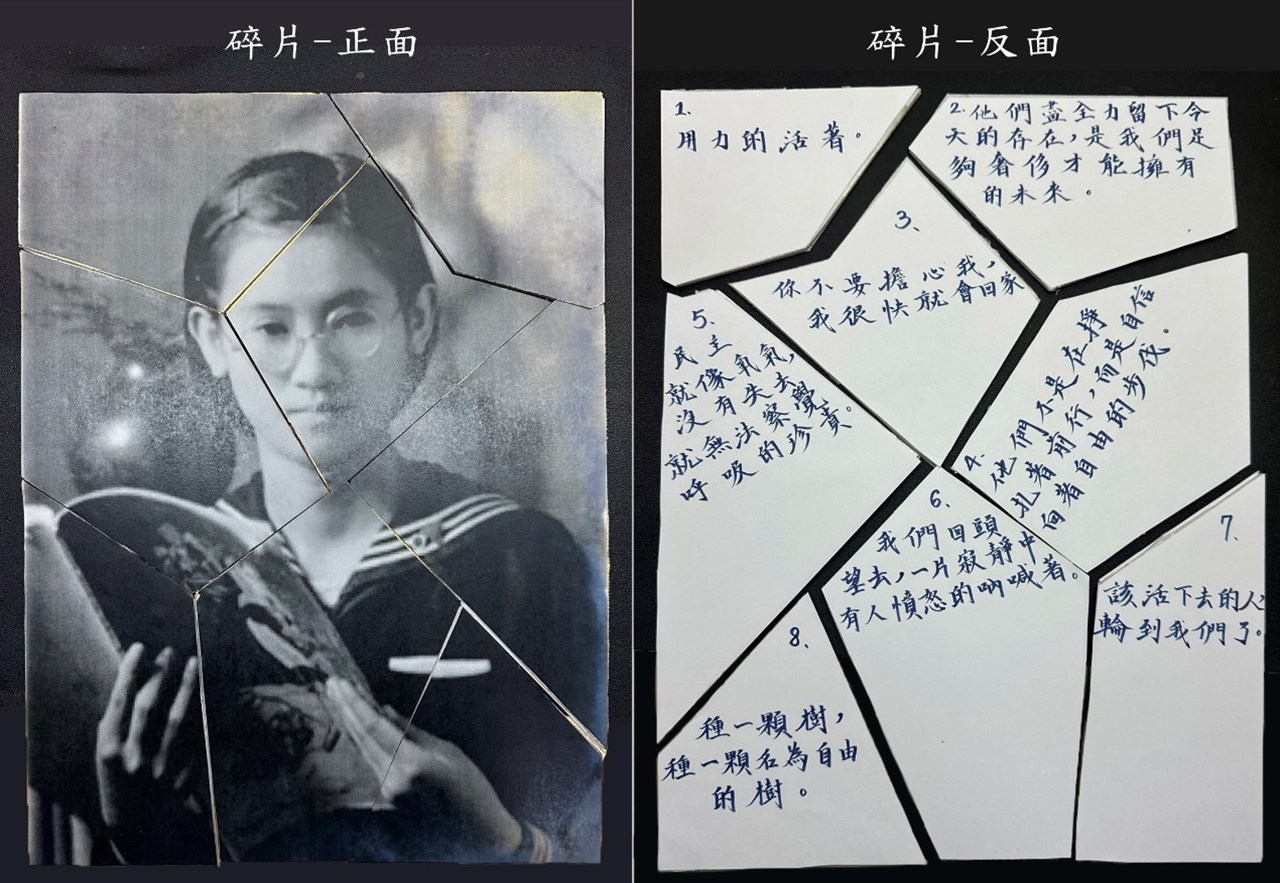 碎片-正面
碎片-反面
1.
用力的活著。
2.他們盡全力留下今
天的存在,是我們足
夠奢侈才能擁有
的未來。
3、
你不要擔心我,
我很快就會回家
4. 他們不是在掙
扎著前行,而是自信
向著自由的步伐。
5、
民主
就像氧氣,
沒有失去
就無法察覺
呼吸的珍貴。
6、
我們回頭
望去,一片寂靜中
有人憤怒的吶喊著。
7、
該活下去的人
輪到我們了。
8、
種一顆樹,
種一顆名為自由
的樹。